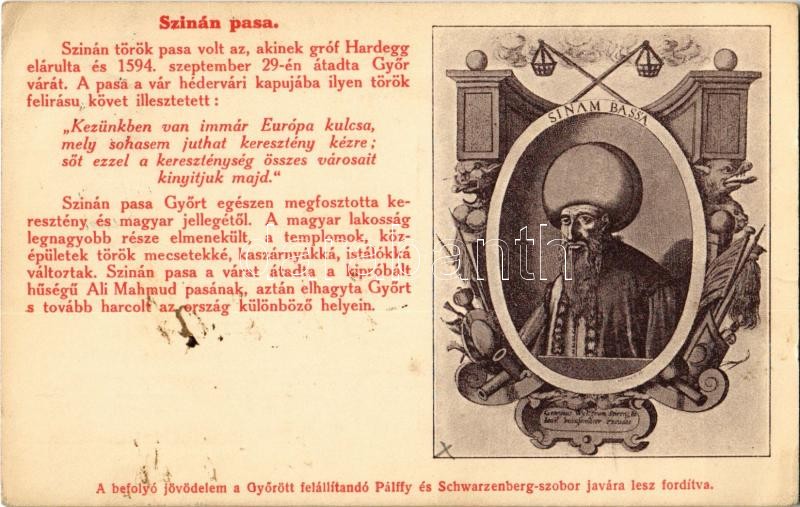 Szinán pasa.
Szinán török pasa volt az, akinek gróf Hardegg
elárulta és 1594. szeptember 29-én átadta Győr
várát. A pasa a vár hédervári kapujába ilyen török
felirásu követ illesztetett :
„Kezünkben van immár Európa kulcsa,
mely sohasem juthat keresztény kézre ;
sőt ezzel a kereszténység összes városait
kinyitjuk majd.“
Szinán pasa Győrt egészen megfosztotta ke-
resztény és magyar jellegétől. A magyar lakosság
legnagyobb része elmenekült, a templomok, köz-
épületek török mecsetekké, kaszárnyákká, istálókká
változtak. Szinán pasa a várat átadta a kipróbált
hűségű Ali Mahmud pasának, aztán elhagyta Győrt
s tovább harcolt az ország különböző helyein.
SINAM BASSA
A befolyó jövödelem a Győrött felállítandó Pálffy és Schwarzenberg-szobor javára lesz fordítva.